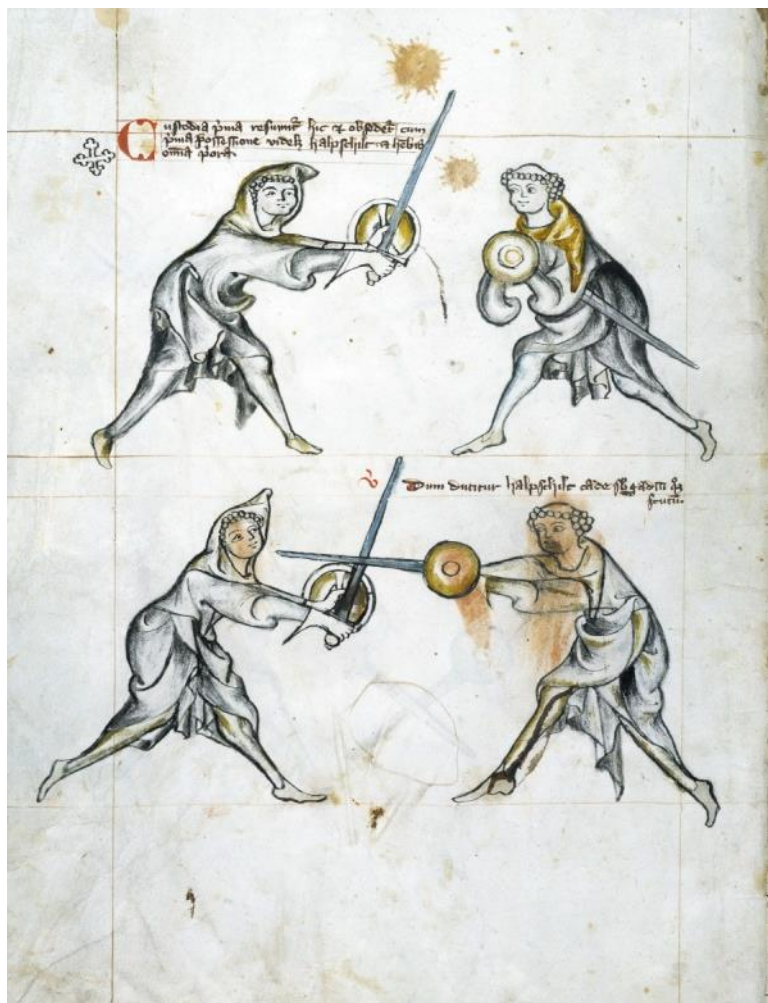 Custodia p̄ma resumit᷑ hic ⁊ obsedet᷑ cum
p̄ma possessione videlꝫ halpschilt ⁊ hēbis
om̄ia p̄ora
Dum ducitur halpschilt cade sb̄ gladiū
scutū.